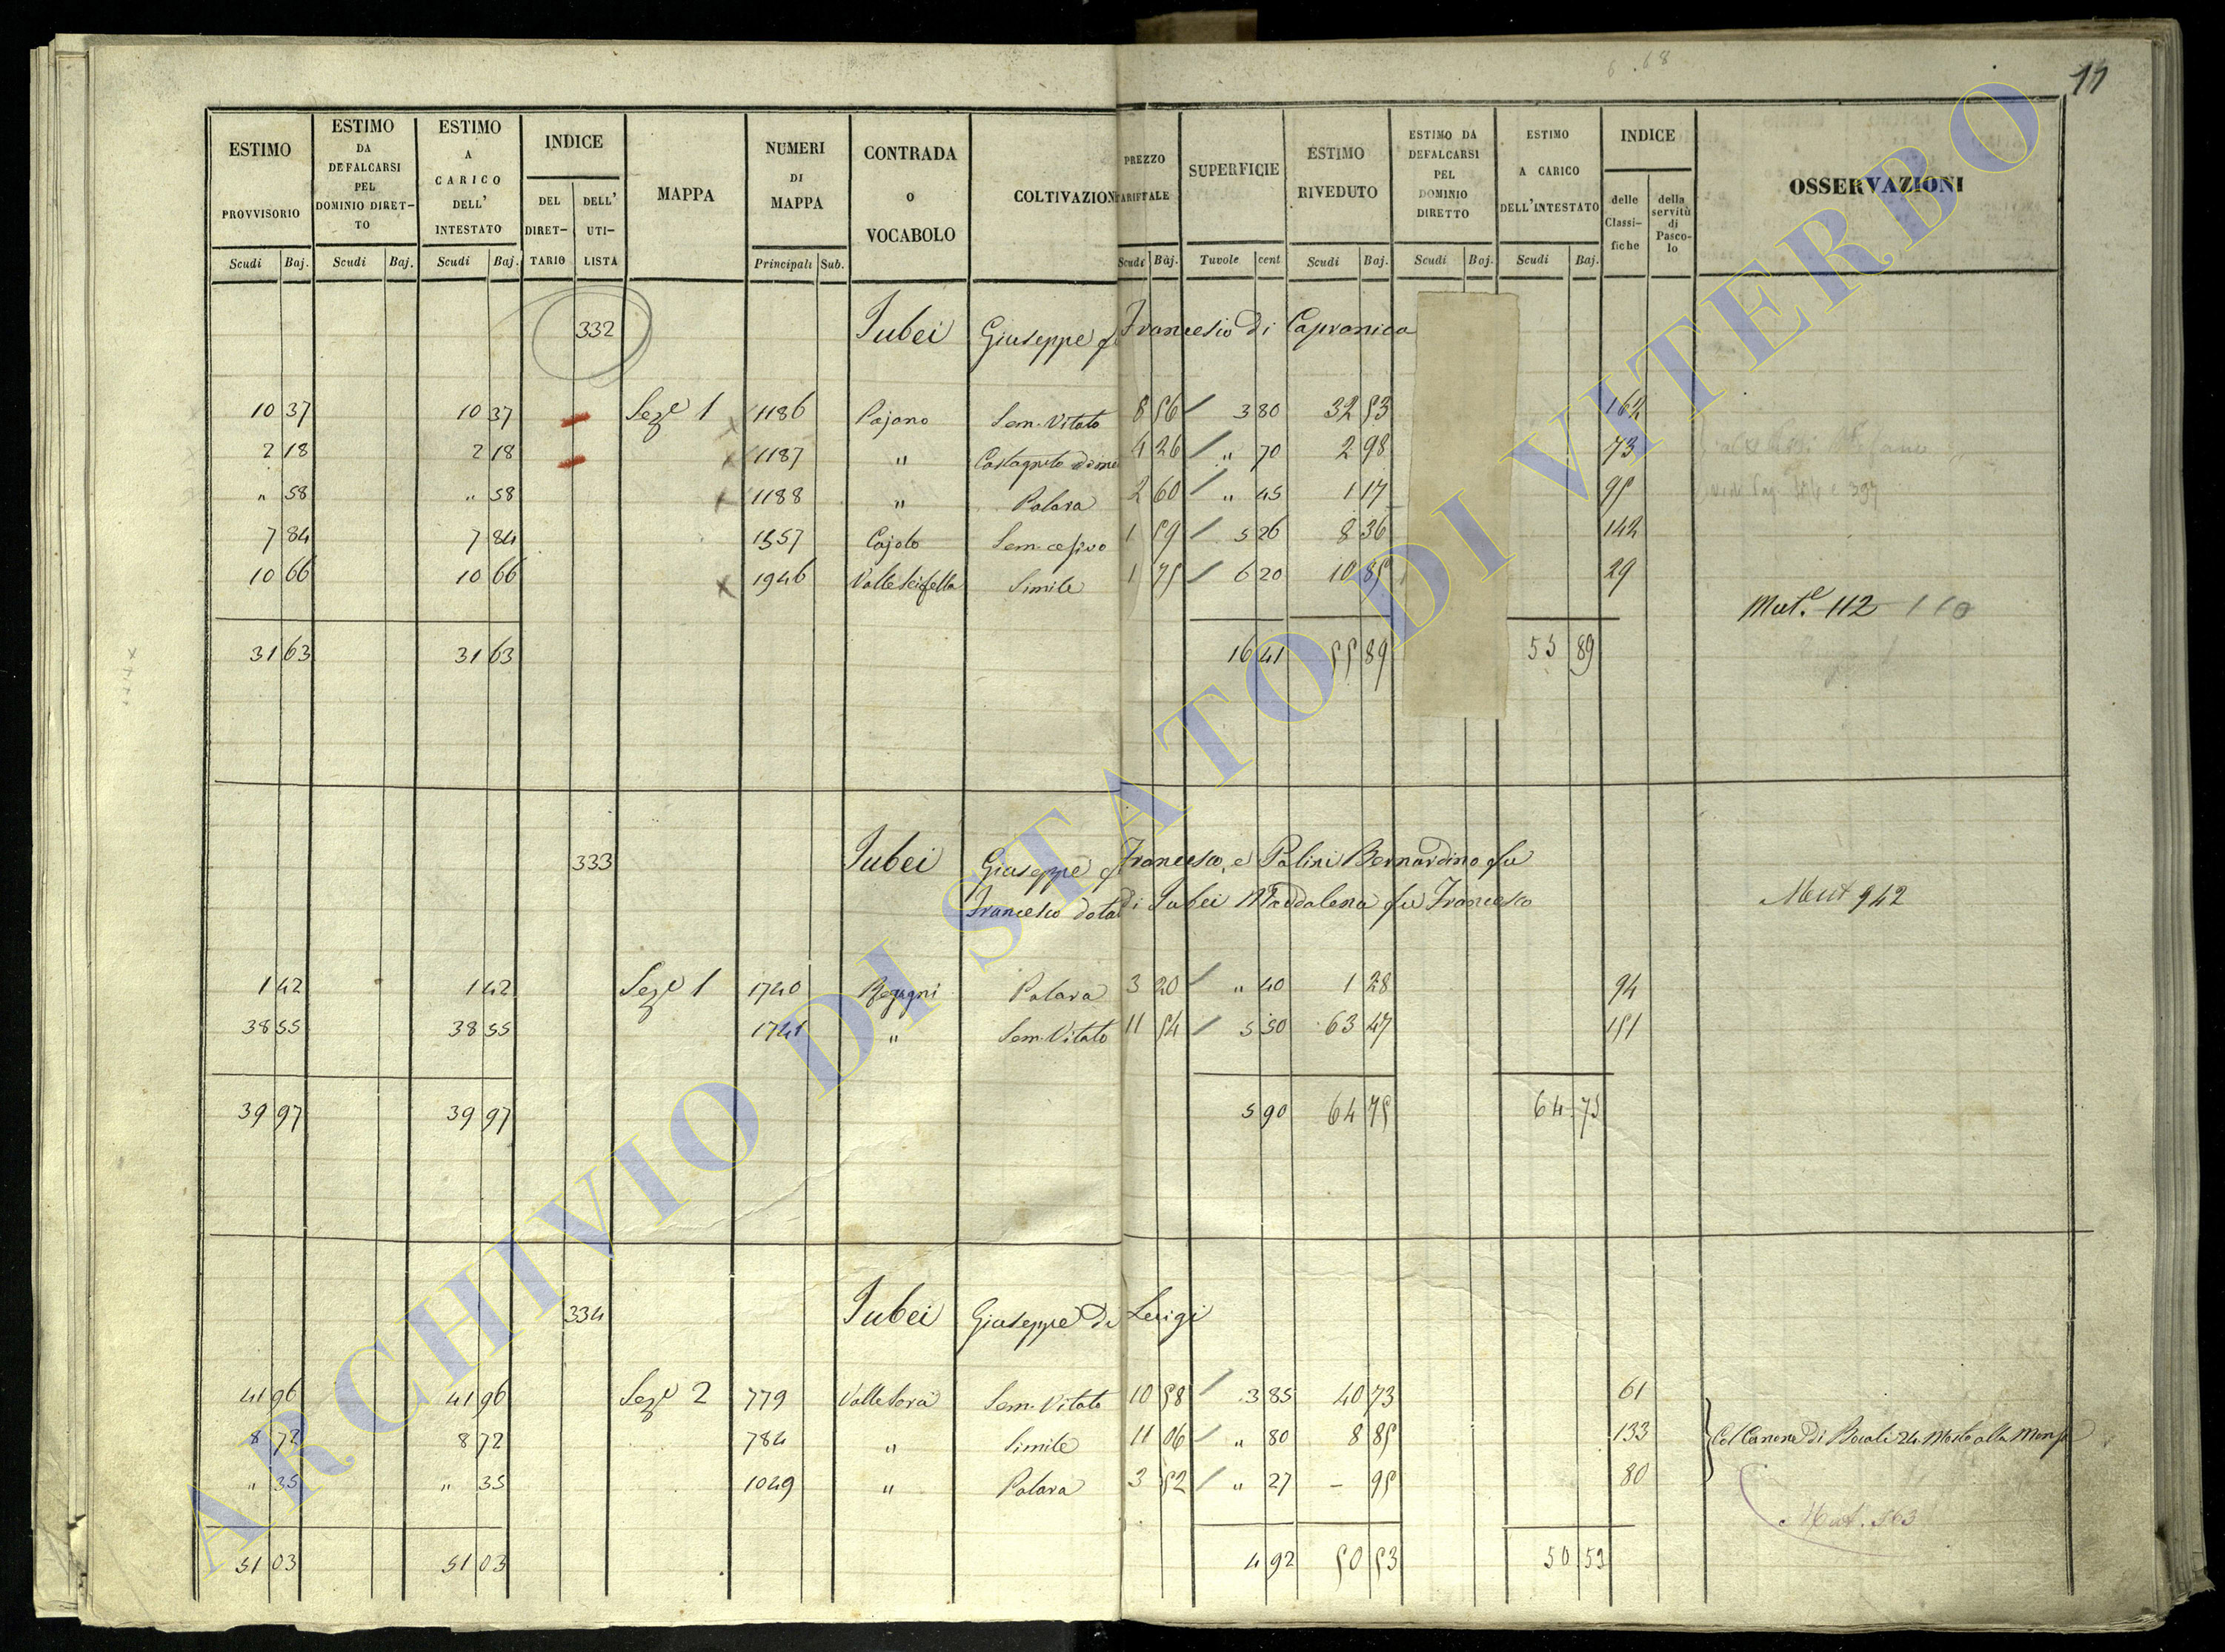 11
6.68
ESTIMO PROVVISORIO
ESTIMO DA DEFALCARSI PEL DOMINIO DIRET-TO
ESTIMO A CARICO DELL' INTESTATO
INDICE
DEL DIRET-TARIO
DELL' UTI-LISTA
MAPPA
NUMERI DI MAPPA
CONTRADA o VOCABOLO
COLTIVAZION
PREZZO TARIFFALE
SUPERFICIE
ESTIMO RIVEDUTO
ESTIMO DA DEFALCARSI PEL DOMINIO DIRETTO
ESTIMO A CARICO DELL'INTESTATO
INDICE
delle Classi-fiche
della servitù di Pasco-lo
OSSERVAZIONI
Scudi Baj. Scudi Baj. Scudi Baj. Principali Sub. Scudi Baj. Tavole cent Scudi Baj. Scudi Baj. Scudi Baj.
332 Jubei Giuseppe fu Francesco di Capranica
10 37 10 37 Seze 1 1186 Pajano Sem. Vitato 8 56 3 80 32 53 162
2 18 2 18 1187 " Castagneto 4 26 " 70 2 98 73
" 58 " 58 1188 " Palara 2 60 " 45 1 17 95
7 84 7 84 1357 Cajolo Sem. cesivo 1 59 5 26 8 36 142
10 66 10 66 1946 Simile 1 75 6 20 10 85 29
Mut.e 112 110
31 63 31 63 16 41 55 89 55 89
333 Jubei Giuseppe fu Francesco, e Palini Bernardino fu
Francesco dotal di Jubei Maddalena fu Francesco
Mut 942
1 42 1 42 Seze 1 1740 Regugni Palara 3 20 " 40 1 28 94
38 55 38 55 1741 " Sem. Vitato 11 54 5 50 63 47 151
39 97 39 97 5 90 64 75 64 75
334 Jubei Giuseppe di Luigi
41 96 41 96 Seze 2 779 Sem. Vitato 10 58 3 85 40 73 61
8 72 8 72 784 " Simile 11 06 " 80 8 85 133 Col Canone di Bocali 24 Mosto alla Mensa
" 35 " 35 1049 " Palara 3 52 " 27 – 95 80
Mut. 563
51 03 51 03 4 92 50 53 50 53
ARCHIVIO DI STATO DI VITERBO